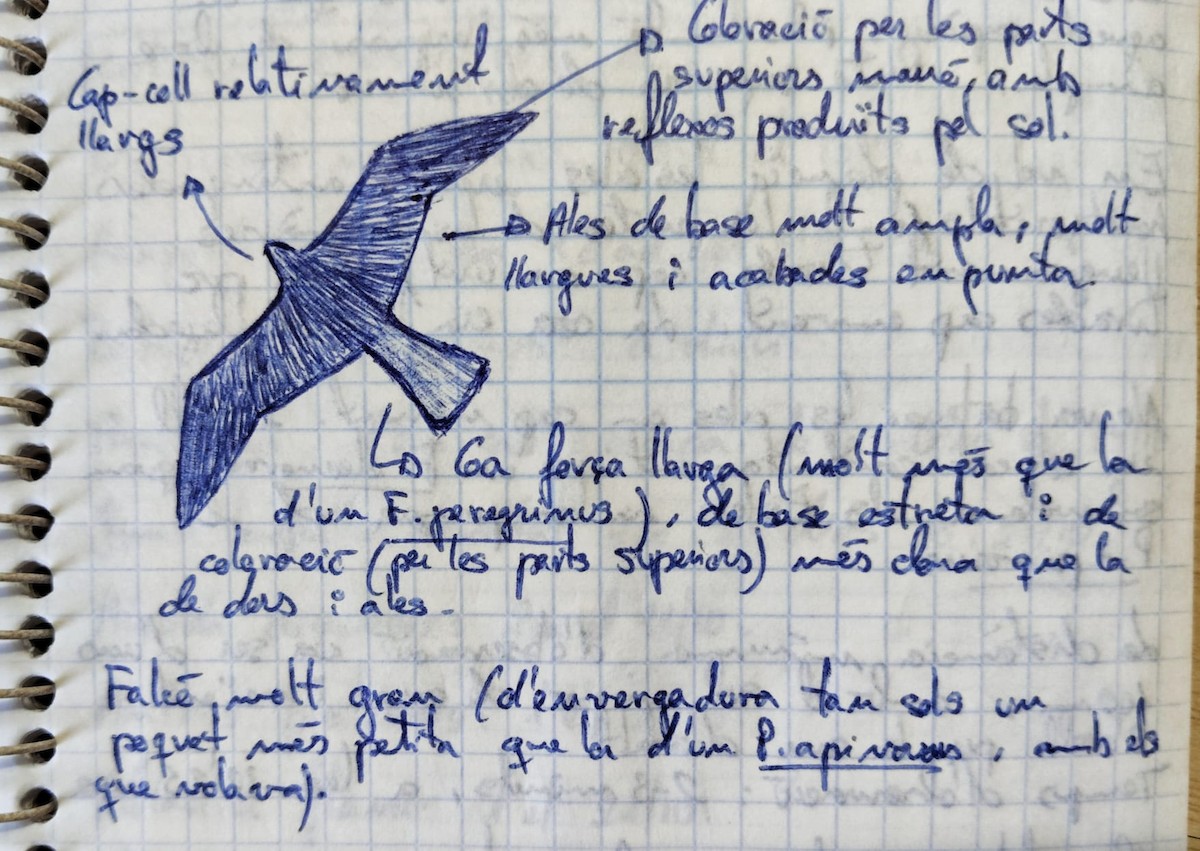 Cap-coll relativament
llargs
Coloració per les parts
superiors marró, amb
reflexos produïts pel sol.
Ales de base molt ampla, molt
llargues i acabades en punta.
Coa força llarga (molt més que la
d'un F. peregrinus), de base estreta i de
coloració (per les parts superiors) més clara que la
de dors i ales.
Falcó molt gran (d'envergadura tan sols un
poquet més petita que la d'un P. apivorus, amb els
que volava).